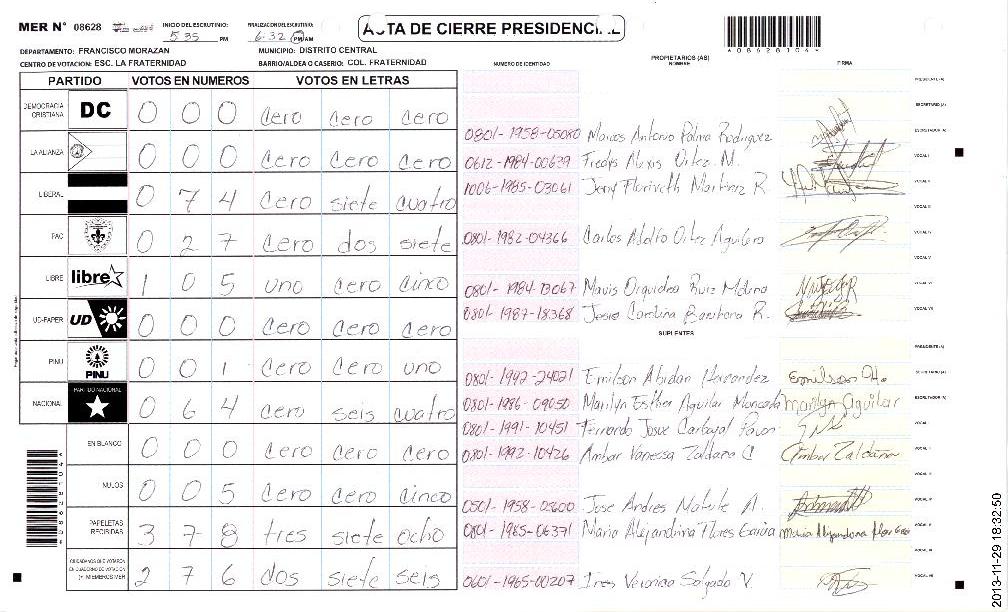 MER N° 08628 INICIO DEL ESCRUTINIO: 5 35 PM FINALIZACION DEL ESCRUTINIO: 6:32 PM AM
ACTA DE CIERRE PRESIDENCIAL
408628104
DEPARTAMENTO: FRANCISCO MORAZAN MUNICIPIO: DISTRITO CENTRAL
CENTRO DE VOTACION: ESC. LA FRATERNIDAD BARRIO/ALDEA O CASERIO: COL. FRATERNIDAD
NUMERO DE IDENTIDAD PROPIETARIOS (AS) NOMBRE FIRMA
PARTIDO VOTOS EN NUMEROS VOTOS EN LETRAS
PRESIDENTE (A)
DEMOCRACIA CRISTIANA DC 0 0 0 Cero Cero Cero
SECRETARIO (A)
0801-1958-05080 Marcos Antonio Palma Rodriguez ESCRUTADOR (A)
LA ALIANZA 0 0 0 Cero Cero Cero
0612-1984-00639 Fredys Alexis Ortez M. VOCAL I
1006-1985-03061 Jeny Florineth Martinez R. VOCAL II
LIBERAL 0 7 4 Cero siete cuatro
VOCAL III
PAC 0 2 7 Cero dos siete
0801-1982-04366 Carlos Adolfo Ortez Aguilera VOCAL IV
VOCAL V
LIBRE libre 1 0 5 uno Cero Cinco
0801-1984-13067 Mavis Orquidea Ruiz Molina VOCAL VI
0801-1987-18368 Jessica Carolina Barahona R. VOCAL VII
UD-FAPER UD 0 0 0 Cero Cero Cero
SUPLENTES
PRESIDENTE (A)
PINU PINU 0 0 1 Cero Cero uno
0801-1992-24021 Emilson Abidan Hernandez Emilson H. SECRETARIO (A)
NACIONAL PARTIDO NACIONAL 0 6 4 Cero seis cuatro
0801-1986-09050 Marilyn Esther Aguilar Moncada Marilyn Aguilar ESCRUTADOR (A)
0801-1991-10451 Fernando Josue Carbajal Pavon VOCAL I
EN BLANCO 0 0 0 Cero Cero Cero
0801-1992-10426 Ambar Vanessa Zaldana C Ambar Zaldana VOCAL II
VOCAL III
NULOS 0 0 5 Cero Cero Cinco
0501-1958-05600 Jose Andres Matute A. VOCAL IV
PAPELETAS RECIBIDAS 3 7 8 tres siete ocho
0801-1965-06371 Maria Alejandrina Flores Garcia VOCAL V
VOCAL VI
CIUDADANOS QUE VOTARON EN CUADERNO DE VOTACION (+) MIEMBROS MER 2 7 6 dos siete seis
0601-1965-00207 Ines Veronica Salgado V. VOCAL VII
2013-11-29 18:32:50